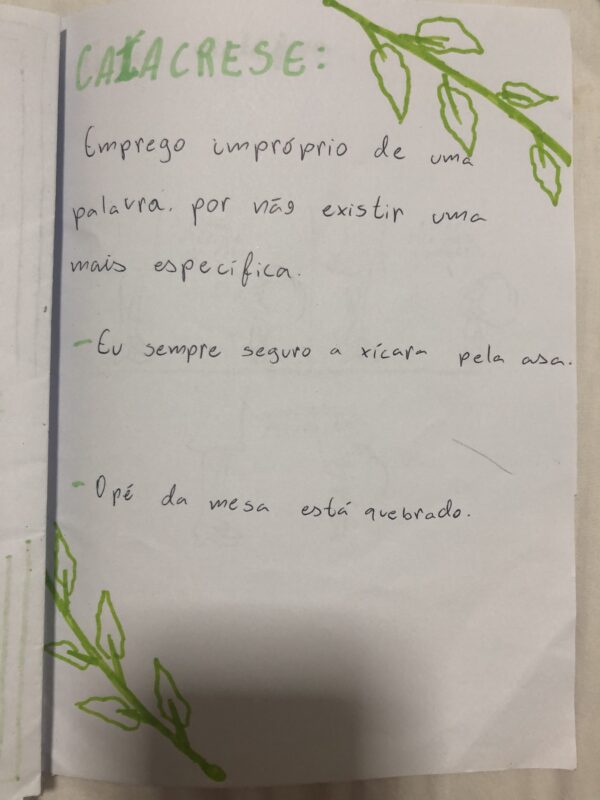 CATACRESE:
Emprego impróprio de uma
palavra. por não existir uma
mais específica.
- Eu sempre seguro a xícara pela asa.
- O pé da mesa está quebrado.